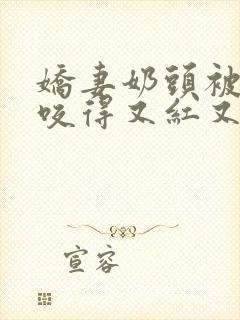 嬌妻奶頭被
咬得又紅又
宣容